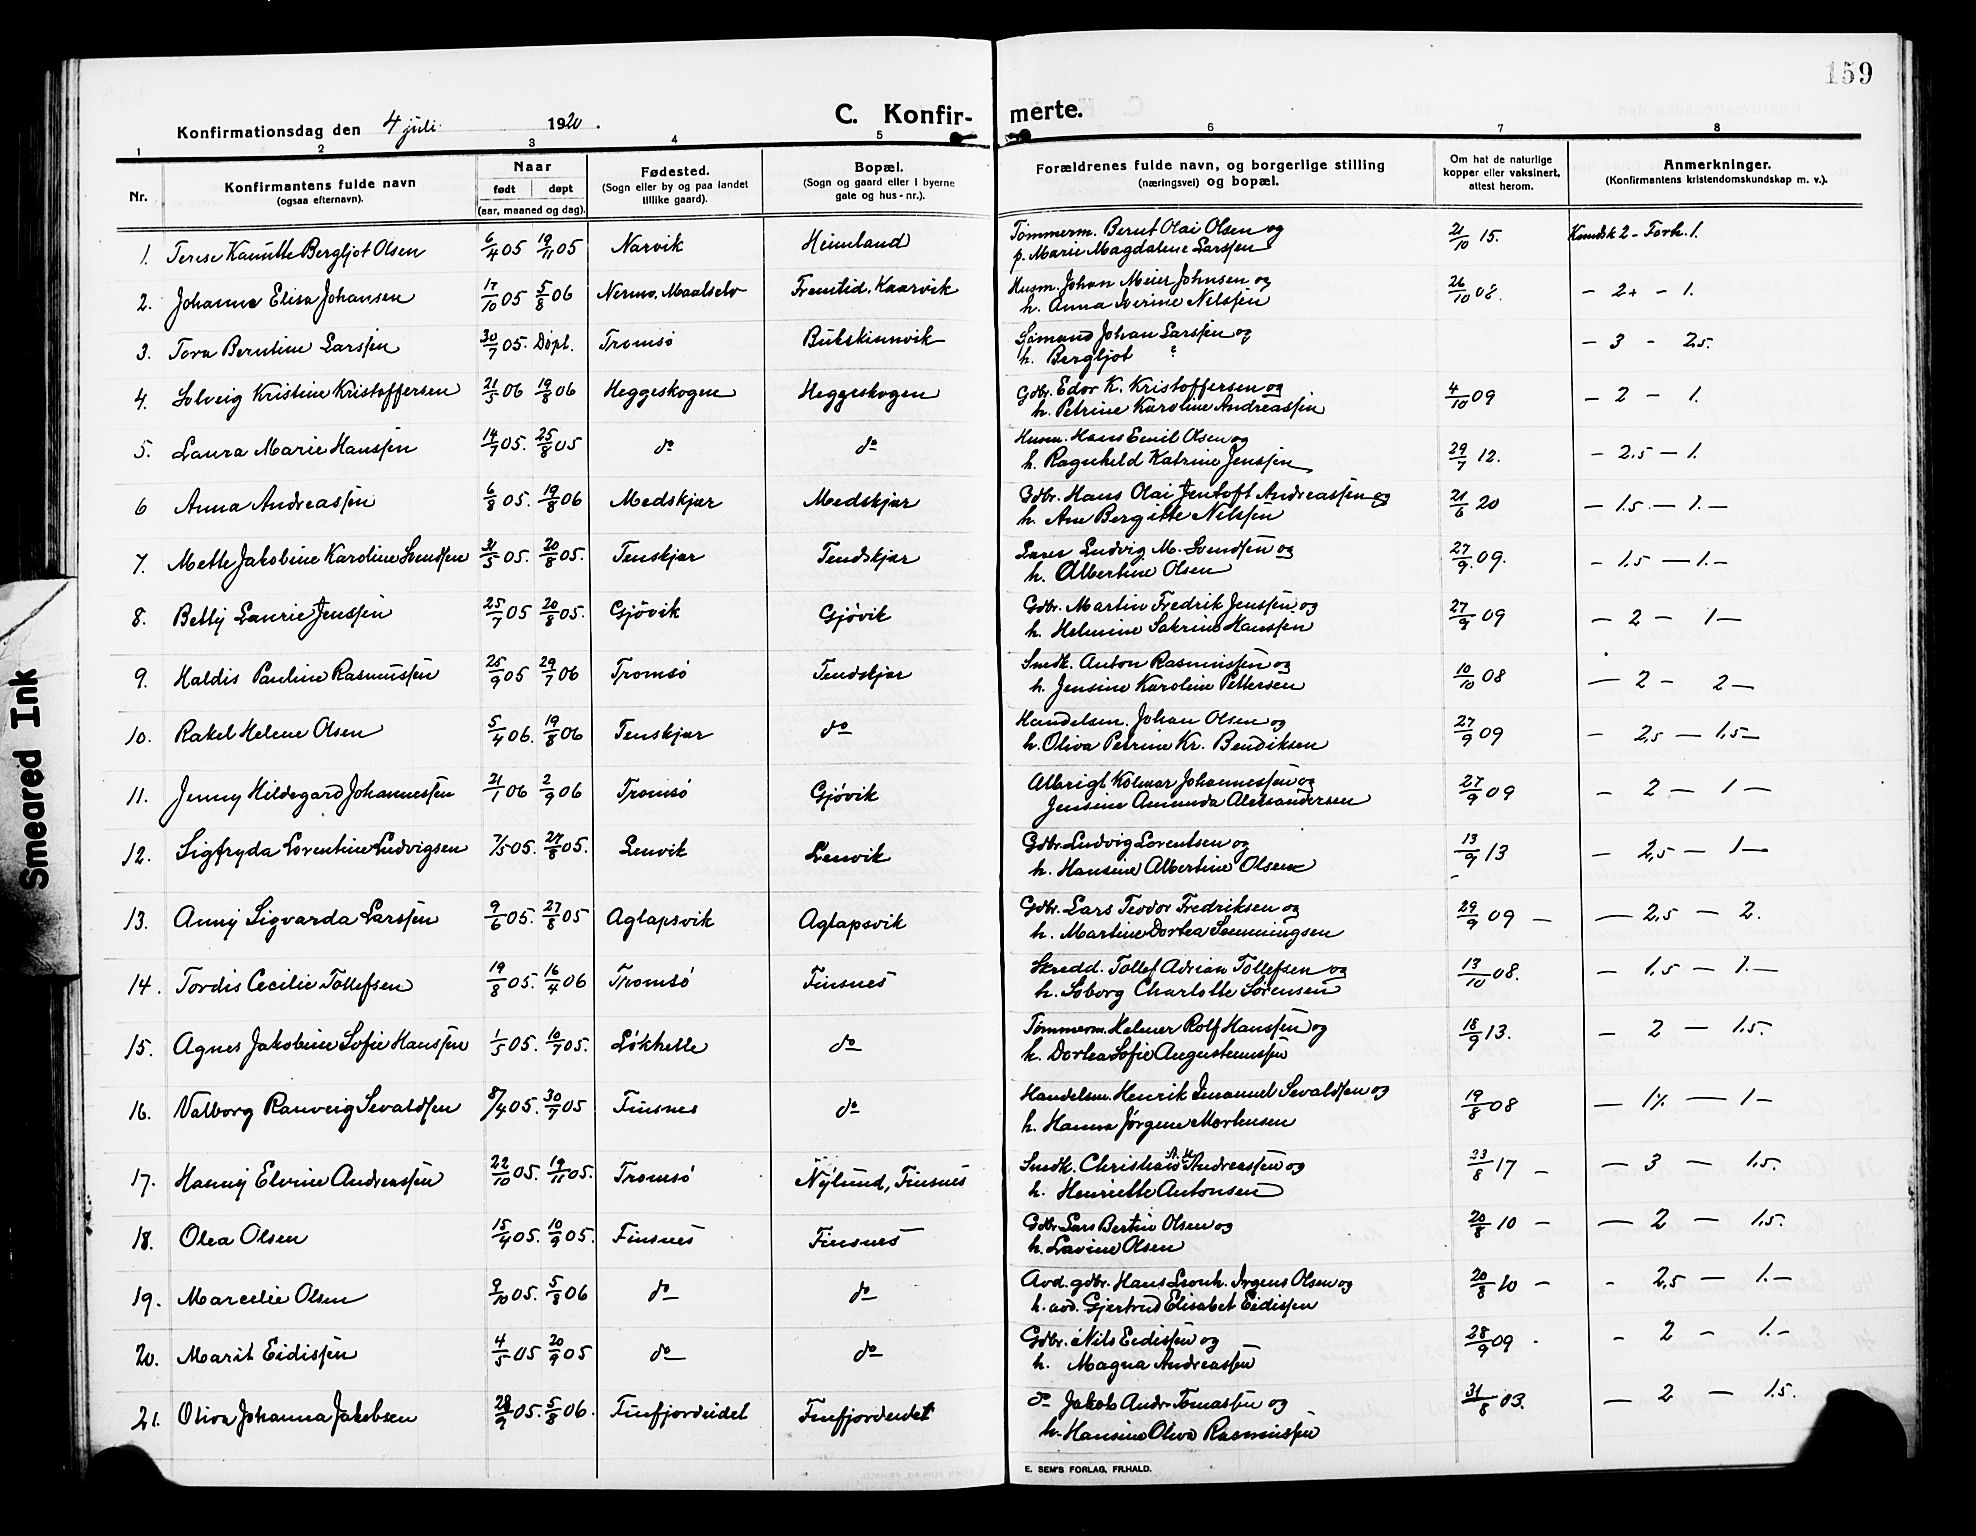 159
Konfirmationsdag den 4 juli 1920.
C. Konfirmerte.
1 2 3 4 5 6 7 8
Nr. Konfirmantens fulde navn (ogsaa efternavn). Naar født døpt (aar, maaned og dag). Fødested. (Sogn eller by og paa landet tillike gaard). Bopæl. (Sogn og gaard eller i byerne gate og hus-nr.). Forældrenes fulde navn, og borgerlige stilling (næringsvei) og bopæl. Om hat de naturlige kopper eller vaksinert, attest herom. Anmerkninger. (Konfirmantens kristendomskundskap m. v.).
1. Terese Kamitte Bergljot Olsen 6/4 05 19/11 05 Narvik Heimland Tømmerm. Bernt Olai Olsen og 21/10 15. Kundsk 2 - Forh. 1.
p. Marie Magdalene Larssen
2. Johanna Elisa Johansen 17/10 05 5/8 06 Nermo, Maalselv Fremtid, Kaarvik Husm. Johan Meier Johnsen og 26/10 08. - 2+ - 1.
h. Anna Iverine Nilssen
3. Tora Berntine Larssen 30/7 05. Døpt. Tromsø Bukskinnvik Sømand Johan Larssen og - 3 - 2.5.
h. Bergljot ?
4. Solveig Kristine Kristoffersen 21/5 06 19/8 06 Heggeskogen Heggeskogen Gdbr. Edor K. Kristoffersen og 4/10 09 - 2 - 1.
h. Petrine Karoline Andreassen
5. Laura Marie Hanssen 14/7 05. 25/8 05 do do Husm. Hans Emil Olsen og 29/7 12. - 2.5 - 1.
h. Ragnheld Katrine Jenssen
6 Anna Andreassen 6/8 05. 19/8 06 Medskjær Medskjær Gdbr. Hans Olai Jentoft Andreassen og 21/6 20 - 1.5 - 1. -
h. Ane Bergitte Nilssen
7. Mette Jakobine Karoline Svendsen 31/5 05. 20/8 05. Tenskjær Tendskjær Lærer Ludvig M. Svendsen og 27/9 09. - 1.5 - 1. -
h. Albertine Olsen
8. Betty Laurie Jenssen 25/7 05 20/8 05. Gjövik Gjövik Gdbr. Martin Fredrik Jenssen og 27/9 09 - 2 - 1 -
h. Helmine Sakrine Hanssen
9. Haldis Pauline Rasmussen 25/9 05 29/7 06 Tromsø Tendskjær Smdk. Anton Rasmussen og 10/10 08 - 2 - 2 -
h. Jensine Karoline Pettersen
10. Rakel Helene Olsen 5/4 06. 19/8 06 Tenskjær do Handelsm. Johan Olsen og 27/9 09 - 2,5 - 1,5 -
h. Oliva Petrine Kr. Bendiksen
11. Jenny Hildegard Johannessen 21/1 06 2/9 06 Tromsø Gjövik Albrigt Kolmar Johannessen og 27/9 09 - 2 - 1 -
Jensine Amanda Aleksandersen
12. Sigfryda Lorentine Ludvigsen 7/5 05. 27/8 05. Lenvik Lenvik Gdbr. Ludvig Lorentsen og 13/9 13 - 2,5 - 1 -
h. Hansine Albertine Olsen
13. Anny Sigvarda Larssen 9/6 05. 27/8 05 Aglapsvik Aglapsvik Gdbr. Lars Teodor Fredriksen og 29/9 09 - - 2,5 - 2.
h. Martine Dortea Sømmingsen
14. Tordis Cecilie Tollefsen 19/8 05. 16/4 06 Tromsø Finsnes Skredd. Tollef Adrian Tollefsen og 13/10 08. - 1,5 - 1. -
h. Soborg Charlotte Sørensen
15. Agnes Jakobine Sofie Hanssen 1/5 05. 10/7 05. Løkhelle do Tømmerm. Helmer Rolf Hanssen og 18/9 13. - 2 - 1.5.
h. Dortea Sofie Augustinussen
16. Valborg Ranveig Sevaldsen 8/4 05. 30/7 05 Finsnes do Handelsm. Henrik Imanuel Sevaldsen og 19/8 08 - 1½ - 1 -
h. Hanna Jørgine Mortensen
17. Hanny Elvine Andreassen 22/10 05. 19/11 05. Tromsø Nylund, Finsnes Smdk. Christian A. M. Andreassen og 23/8 17 - - 3 - 1.5.
h. Henriette Antonsen
18. Olea Olsen 15/4 05. 10/9 05. Finsnes Finsnes Gdbr Lars Bertin Olsen og 20/8 10 - - 2 - 1.5.
h. Lavine Olsen
19. Marselie Olsen 9/10 05. 5/8 06 do do Avd. gdbr. Hans Leonh. Jrgens Olsen og 20/8 10 - - 2,5 - 1. -
h. avd. Gjertrud Elisabet Eidissen
20. Marit Eidissen 4/5 05 20/9 05 do do Gdbr. Nils Eedissen og 28/9 09 - - 2 - 1. -
h. Magna Andreassen
21. Oliva Johanna Jakobsen 28/9 05. 5/8 06. Finfjordeidet Finfjordeidet do Jakob Andr. Tomassen og 31/8 03. - 2 - 1.5.
h. Hansine Oliva Rasmussen
E. SEM'S FORLAG, FR.HALD.
Smeared Ink